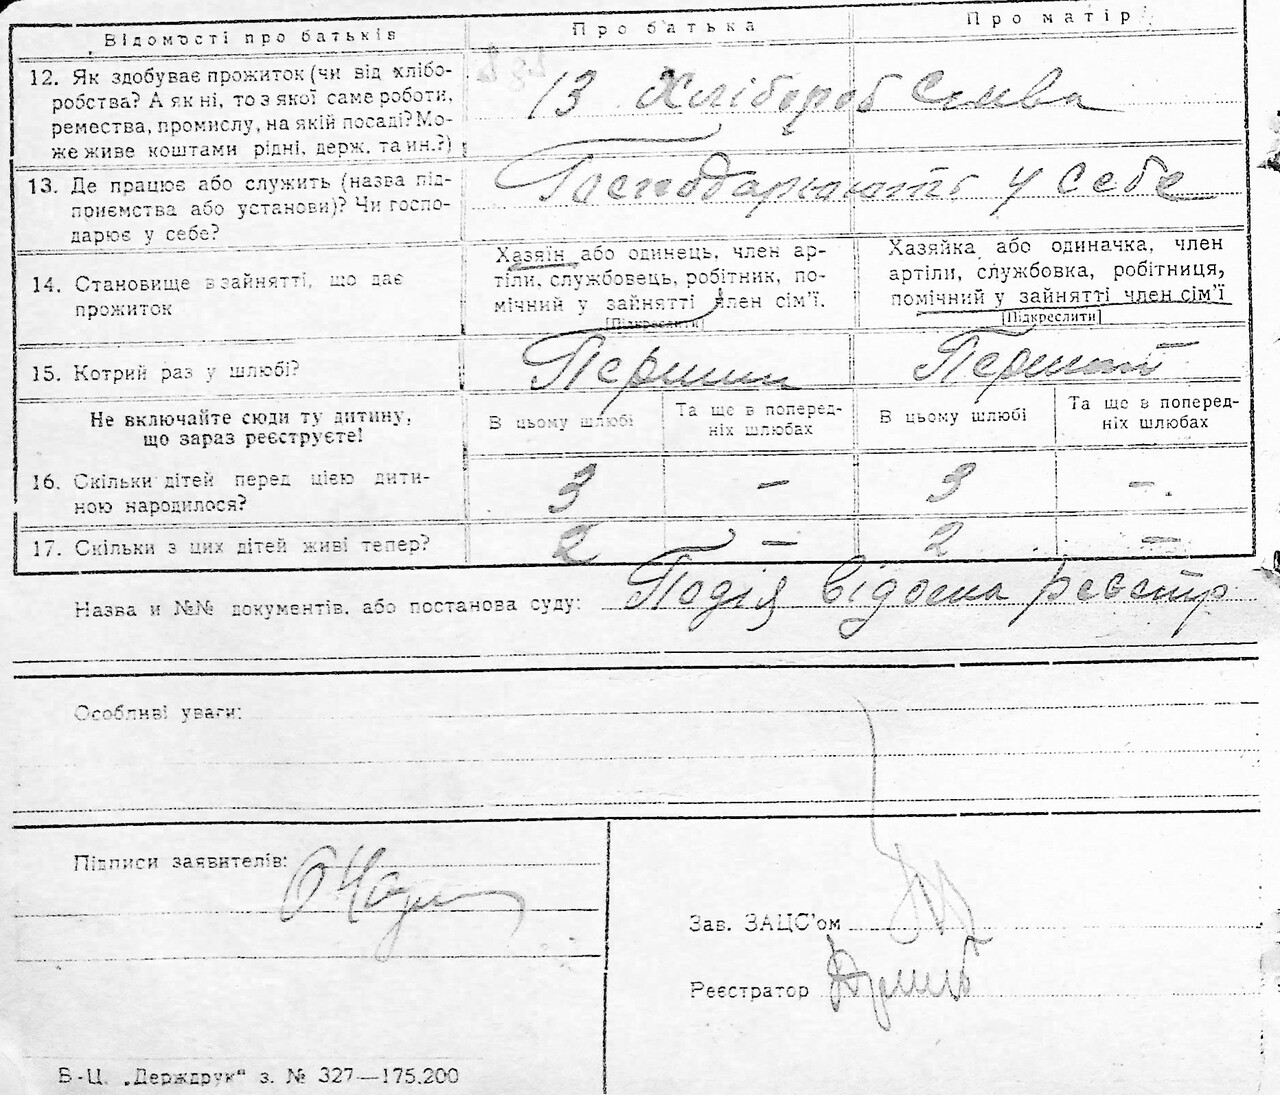 Відомості про батьків
Про батька
Про матір
12. Як здобуває прожиток (чи від хлібо-
робства? А як ні, то з якої саме роботи,
ремества, промислу, на якій посаді? Мо-
же живе коштами рідні, держ. та ин.?)
Хлібороб
13. Де працює або служить (назва під-
приємства або установи)? Чи госпо-
дарює у себе?
Господарюють у себе
14. Становище в зайнятті, що дає
прожиток
Хазяїн або одинець, член ар-
тіли, службовець, робітник, по-
мічний у зайнятті член сім'ї.
[Підкреслити]
Хазяйка або одиначка, член
артіли, службовка, робітниця,
помічний у зайнятті член сім'ї
[Підкреслити]
15. Котрий раз у шлюбі?
Не включайте сюди ту дитину,
що зараз реєструєте!
В цьому шлюбі
Та ще в поперед-
ніх шлюбах
В цьому шлюбі
Та ще в поперед-
ніх шлюбах
16. Скільки дітей перед цією дити-
ною народилося?
3 – 3 –
17. Скільки з цих дітей живі тепер?
2 – 2 –
Назва и №№ документів, або постанова суду: Подія відома реєстр
Особливі уваги:
Підписи заявителів:
Зав. ЗАЦС'ом
Реєстратор
В-Ц. „Держдрук“ з. № 327—175.200